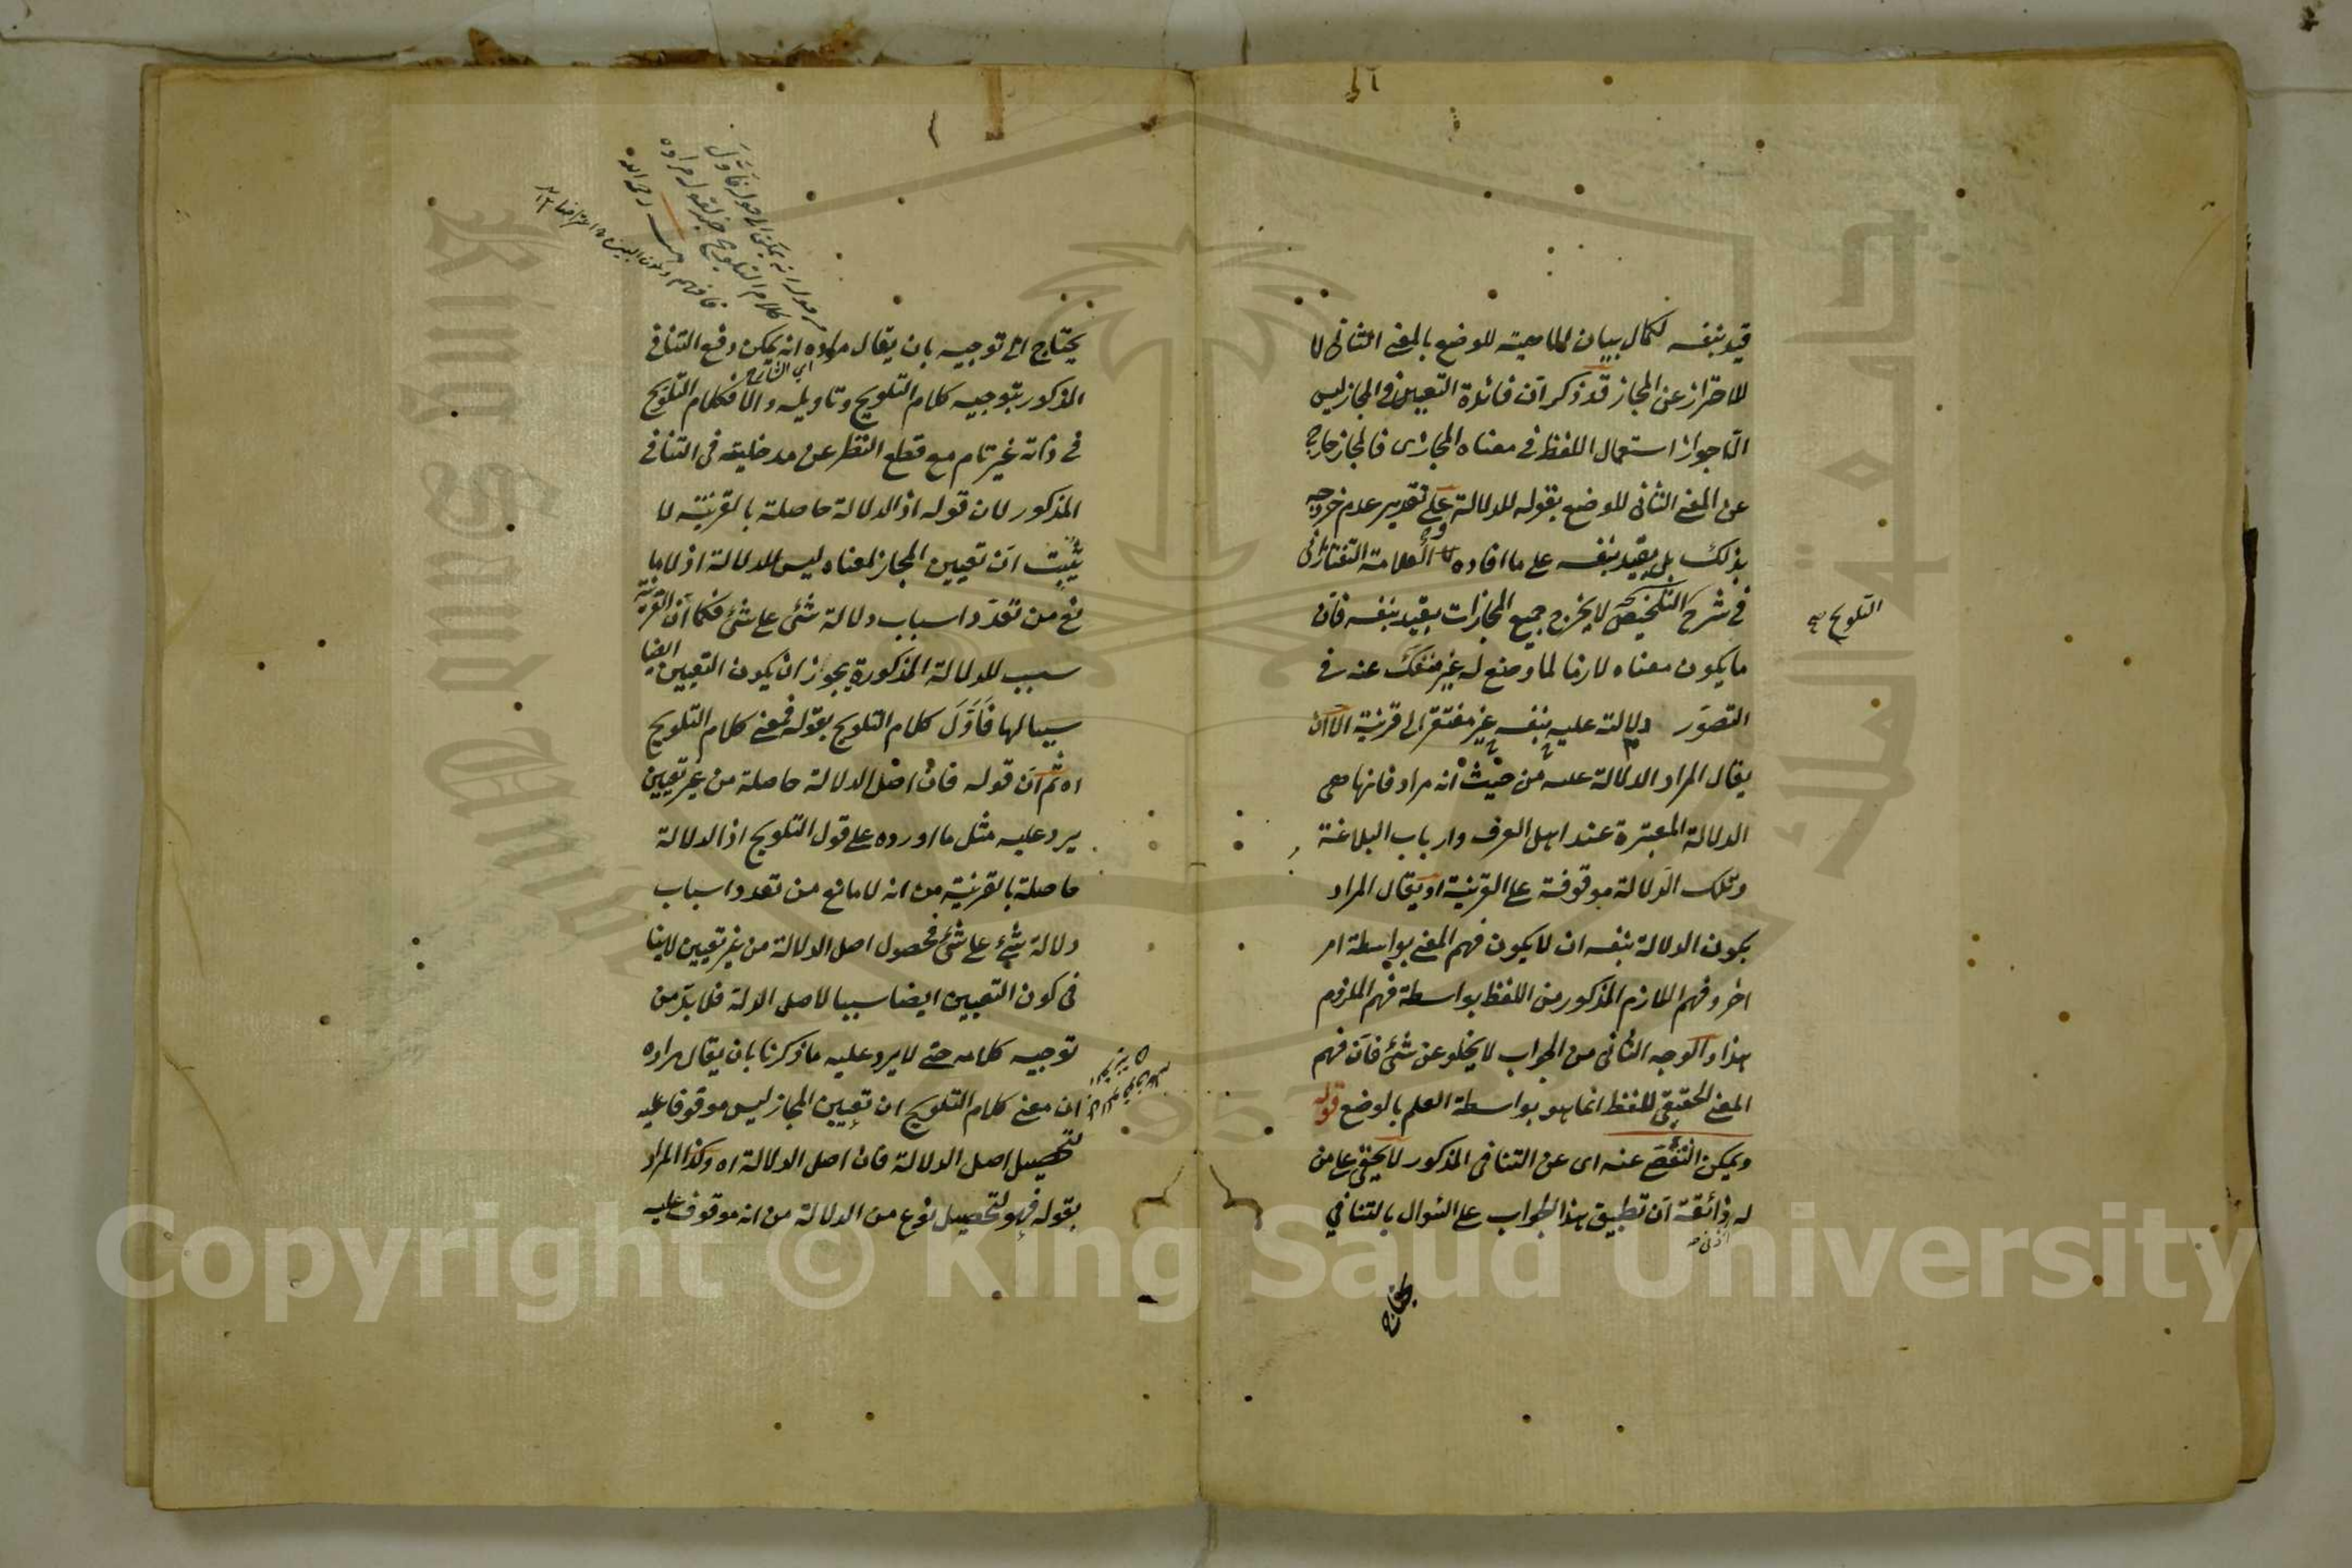 قيد بنفسه لكمال بيان الماهية للوضع بالمعنى الثاني لا
للاحتراز عن المجاز قد ذكر ان فائدة التعيين في المجاز ليس
الا جواز استعمال اللفظ في معناه المجازى فالمجاز خارج
عن المعنى الثانى للوضع بقوله للدلالة على تقدير عدم خروجه
بذلك بل بقيد بنفسه على ما افاده العلامة التفتازانى
في شرح التلخيص لا يخرج جميع المجازات بقيد بنفسه فان
التلويح
ما يكون معناه لازما لما وضع له غير منفك عنه في
التصور دلالته عليه بنفسه غير مفتقر الى قرينة الا ان
يقال المراد الدلالة عليه من حيث انه مراد فانها هى
الدلالة المعتبرة عند اهل العرف وارباب البلاغة
وتلك الدلالة موقوفة على القرينة او يقال المراد
بكون الدلالة بنفسه ان لا يكون فهم المعنى بواسطة امر
اخر وفهم اللازم المذكور من اللفظ بواسطة فهم الملزوم
هذا والوجه الثانى من الجواب لا يخلو عن شئ فان فهم
المعنى الحقيقى للفظ انما هو بواسطة العلم بالوضع قوله
ويمكن التفصى عنه اى عن التنافى المذكور لا يخفى على من
له ذائقة ان تطبيق هذا الجواب على السؤال بالتنافي
يحتاج
يحتاج الى توجيه بان يقال مراده انه يمكن دفع التنافى
اى الشارح
المذكور بتوجيه كلام التلويح وتاويله والا فكلام التلويح
فى ذاته غير تام مع قطع النظر عن مدخليته فى التنافى
المذكور لان قوله اذ الدلالة حاصلة بالقرينة لا
يثبت ان تعيين المجاز لمعناه ليس للدلالة اذ لا ما
نع من تعدد اسباب دلالة شئ على شئ فكما ان القرينة
سبب للدلالة المذكورة يجوز ان يكون التعيين ايضا
سببا لها فاول كلام التلويح بقوله فمعنى كلام التلويح
اه ثم ان قوله فان اصل الدلالة حاصلة من غير تعيين
يرد عليه مثل ما اورده على قول التلويح اذ الدلالة
حاصلة بالقرينة من انه لا مانع من تعدد اسباب
دلالة شئ على شئ فحصول اصل الدلالة من غير تعيين لا ينا
فى كون التعيين ايضا سببا لاصل الدلة فلا بد من
توجيه كلامه حتى لا يرد عليه ما ذكرنا بان يقال مراده
ان معنى كلام التلويح ان تعيين المجاز ليس موقوفا عليه
لتحصيل اصل الدلالة فان اصل الدلالة اه وكذا المراد
بقوله فهو لتحصيل نوع من الدلالة من انه موقوف عليه